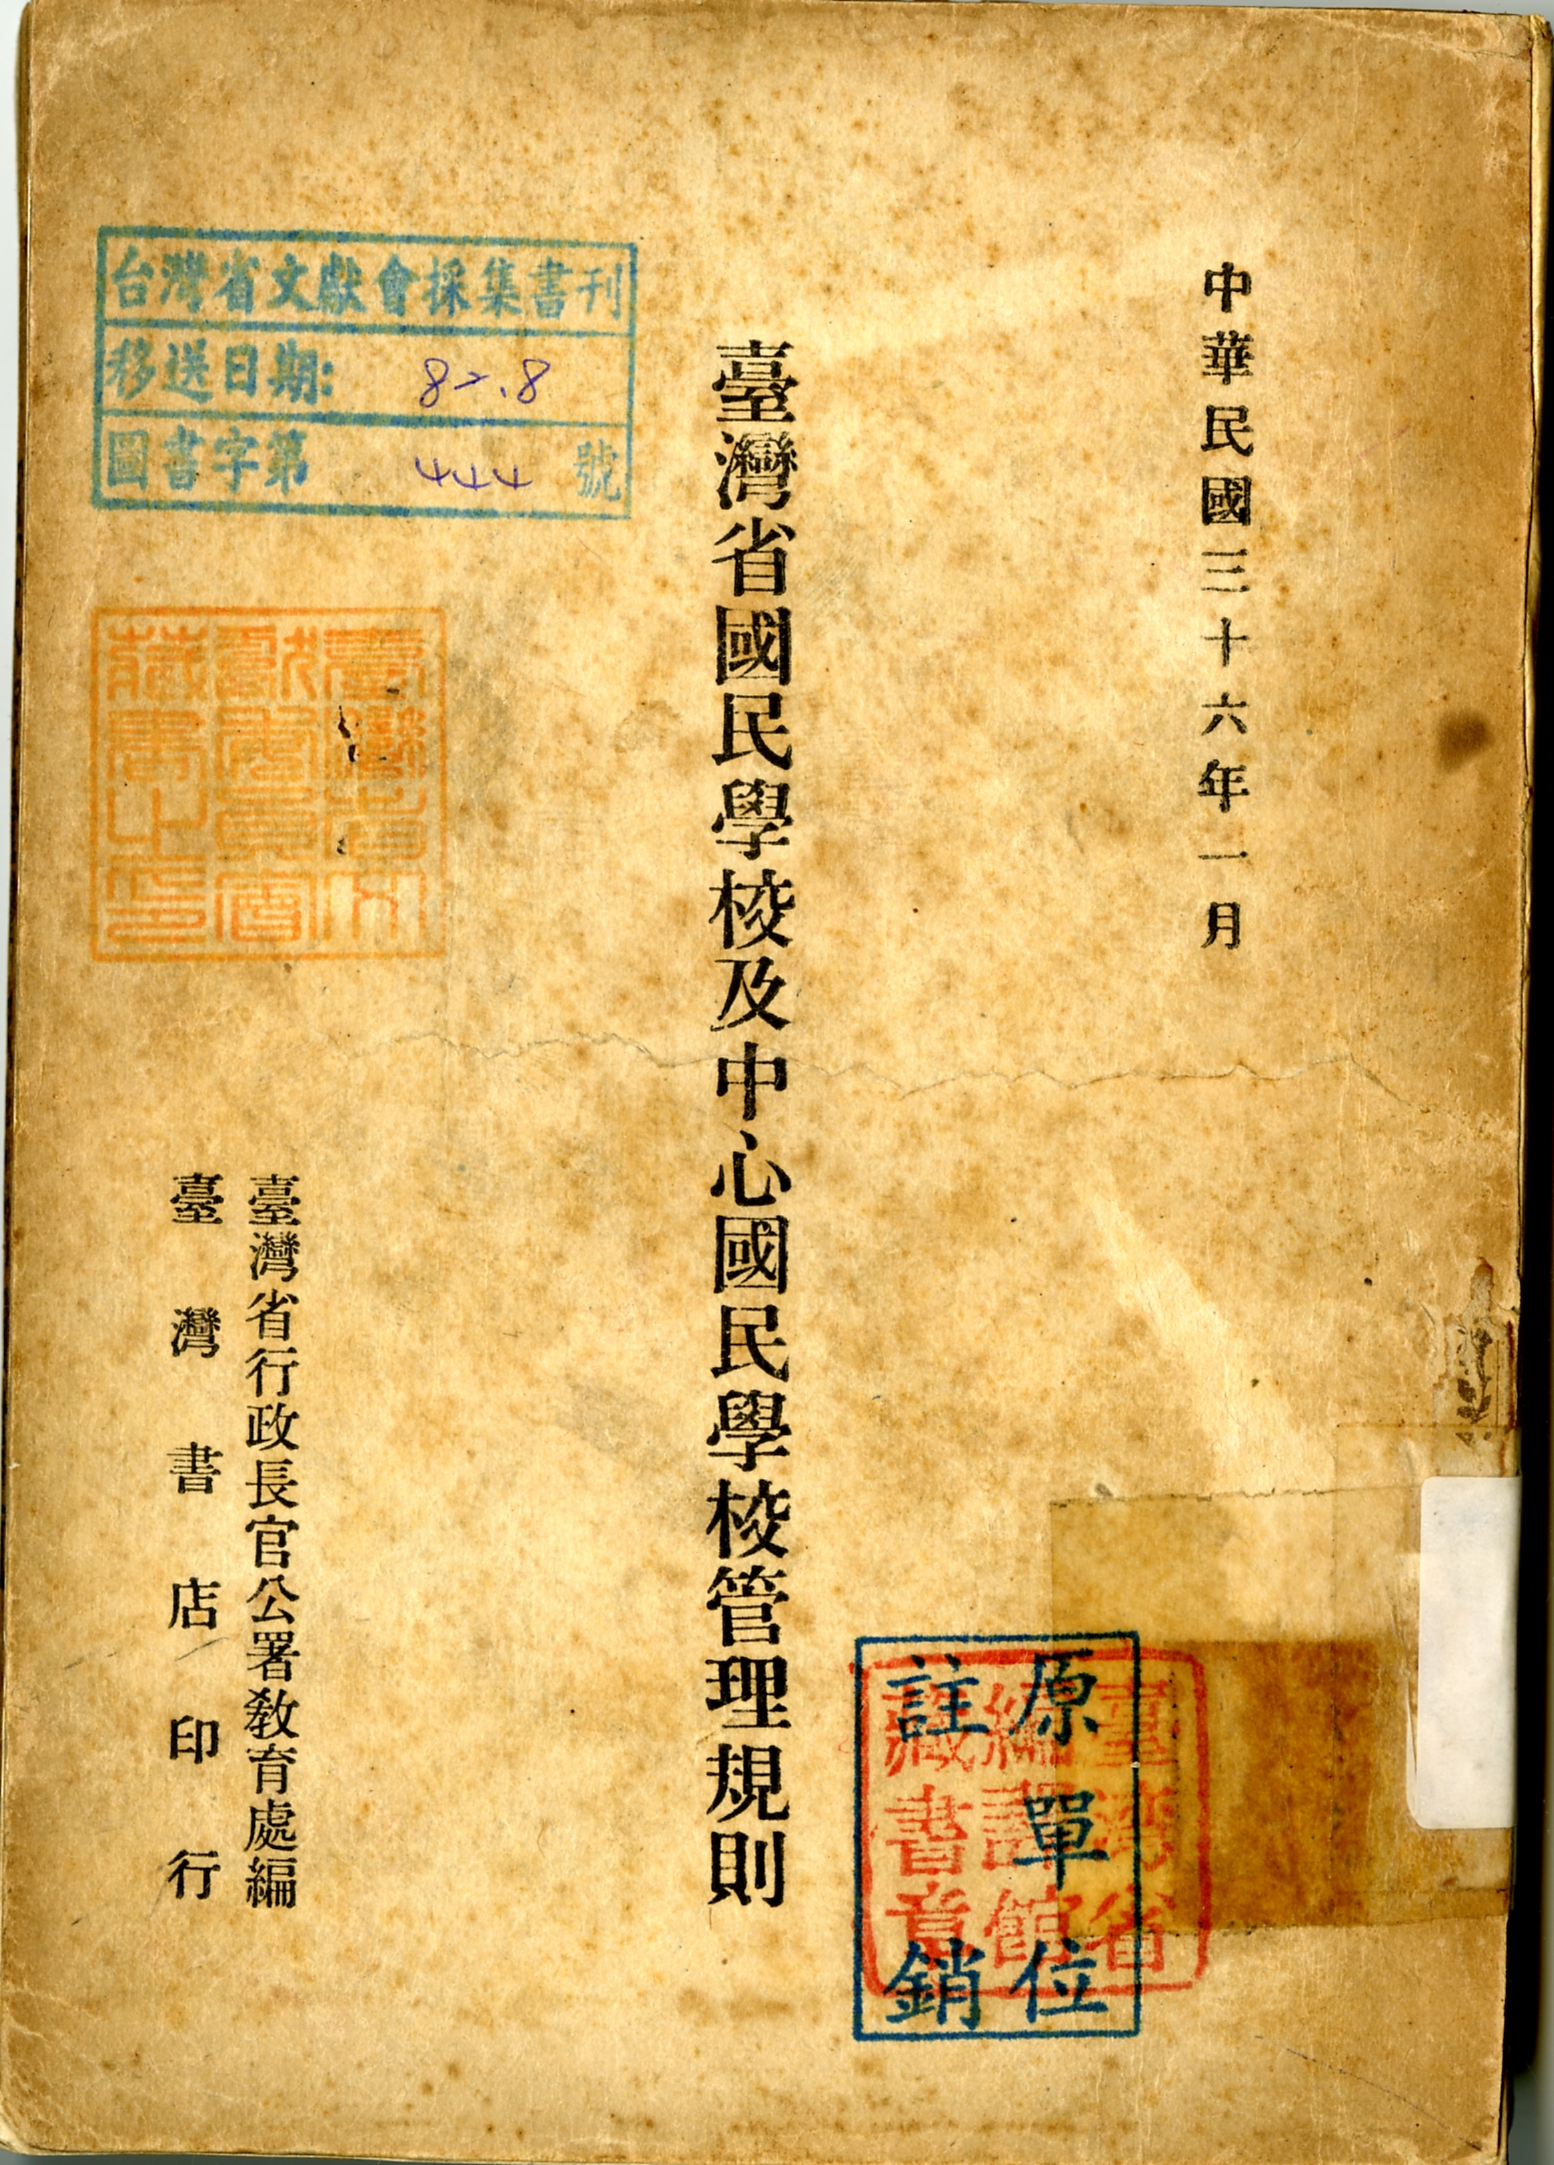 中華民國三十六年一月
臺灣省國民學校及中心國民學校管理規則
臺灣省行政長官公署教育處編
臺灣書店印行
台灣省文獻會採集書刊
移送日期: 82.8
圖書字第 444 號
臺灣省文
獻委員會
藏書之印
原單位
註銷
臺灣省
編譯館
藏書章